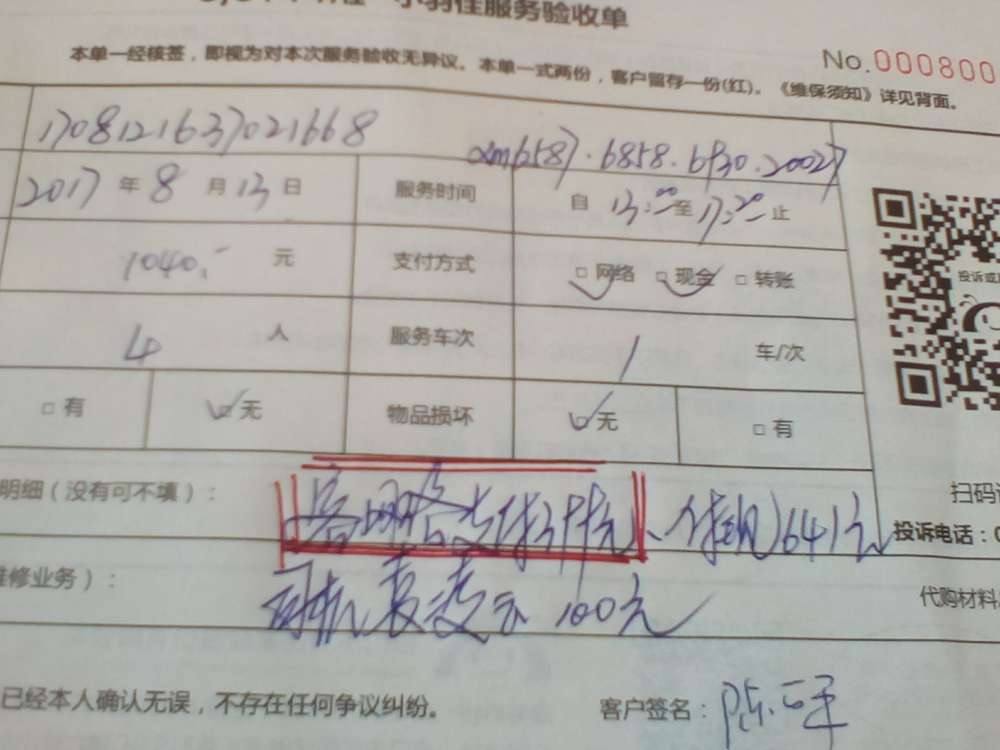 服务验收单
本单一经核签，即视为对本次服务验收无异议。本单一式两份，客户留存一份(红)。《维保须知》详见背面。
No.000800
1708121637021668
2017年8月13日 服务时间 自13:00至17:20止
1040.- 元 支付方式 □网络 □现金 □转账
4人 服务车次 1车/次
□有 □无 物品损坏 □无 □有
投诉或
明细（没有可不填）： 元、付现641元
扫码
投诉电话：
维修业务）： 100元
代购材料
已经本人确认无误，不存在任何争议纠纷。 客户签名：